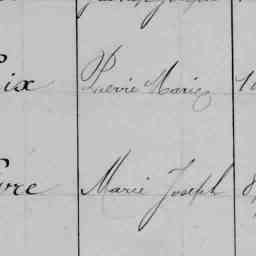 ix Pierre Marie 1
vre Marie Joseph 8